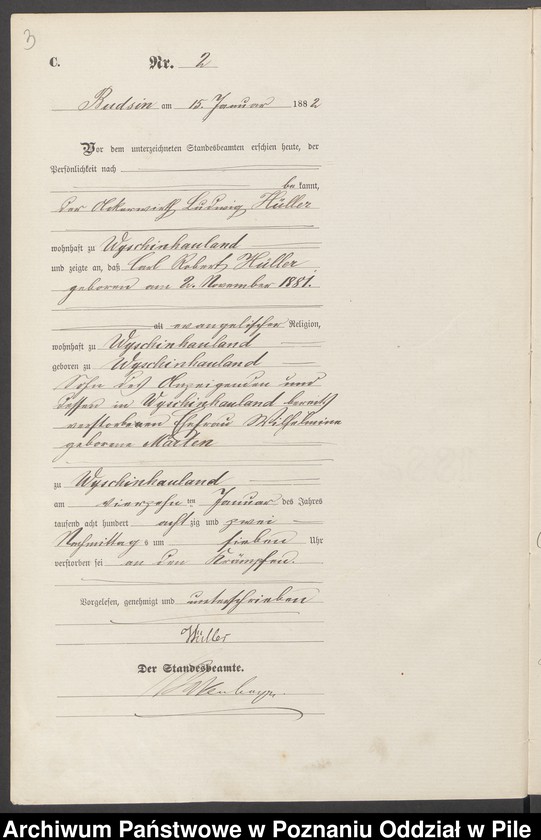 3
C. Nr. 2
Budsin am 15. Januar 1882
Vor dem unterzeichneten Standesbeamten erschien heute, der
Persönlichkeit nach
bekannt,
der Ackerwirth Ludwig Hüller
wohnhaft zu Wyschinhauland
und zeigte an, daß Carl Robert Hüller,
geboren am 2. November 1881.
alt evangelischer Religion,
wohnhaft zu Wyschinhauland
geboren zu Wyschinhauland
Sohn des Anzeigenden und
dessen in Wyschinhauland bereits
verstorbenen Ehefrau Wilhelmine
geborene Marten
zu Wyschinhauland
am vierzehnten Januar des Jahres
tausend acht hundert achtzig und zwei
Nachmittags um sieben Uhr
verstorben sei an den Krämpfen.
Vorgelesen, genehmigt und unterschrieben
Hüller
Der Standesbeamte.
Archiwum Państwowe w Poznaniu Oddział w Pile